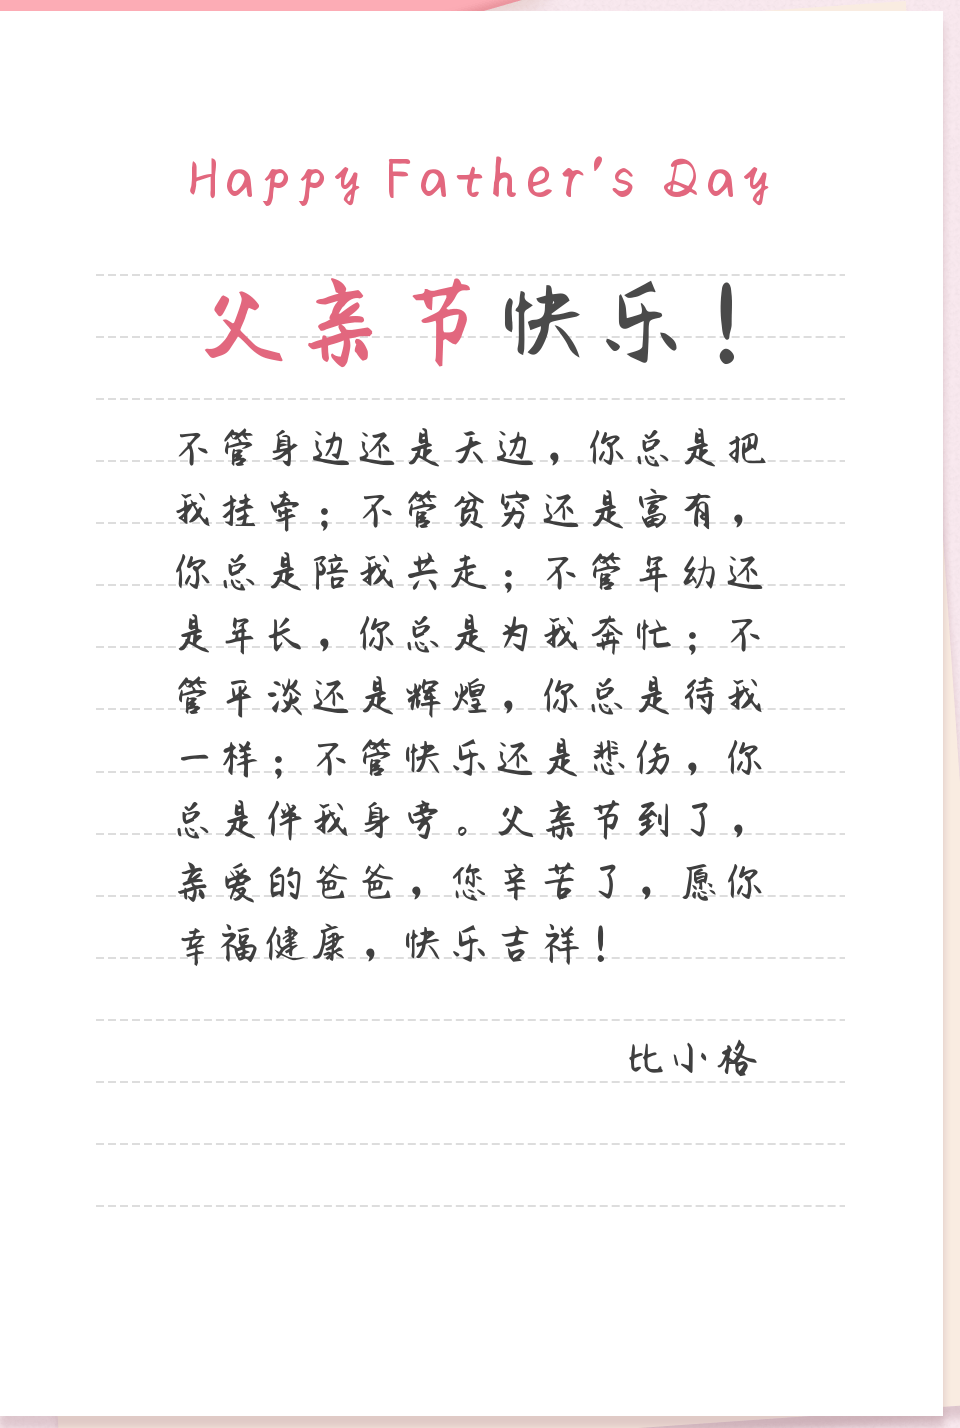 Happy Father's Day
父亲节快乐！
不管身边还是天边，你总是把
我挂牵；不管贫穷还是富有，
你总是陪我共走；不管年幼还
是年长，你总是为我奔忙；不
管平淡还是辉煌，你总是待我
一样；不管快乐还是悲伤，你
总是伴我身旁。父亲节到了，
亲爱的爸爸，您辛苦了，愿你
幸福健康，快乐吉祥！
比小格